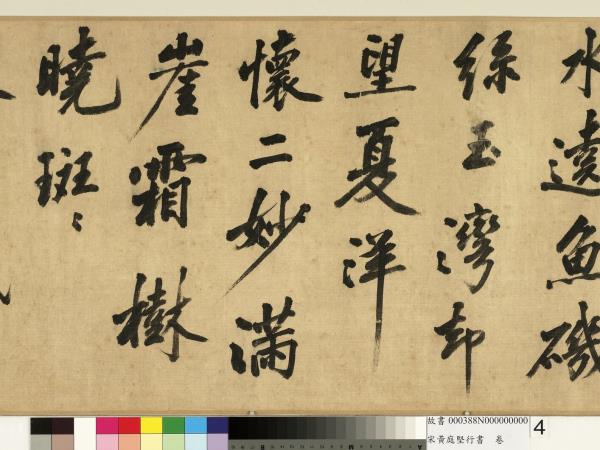 水遶魚磯
綠玉灣却
望夏洋
懷二妙滿
崖霜樹
曉斑〻
故書 000388N000000000
宋黃庭堅行書 卷
4